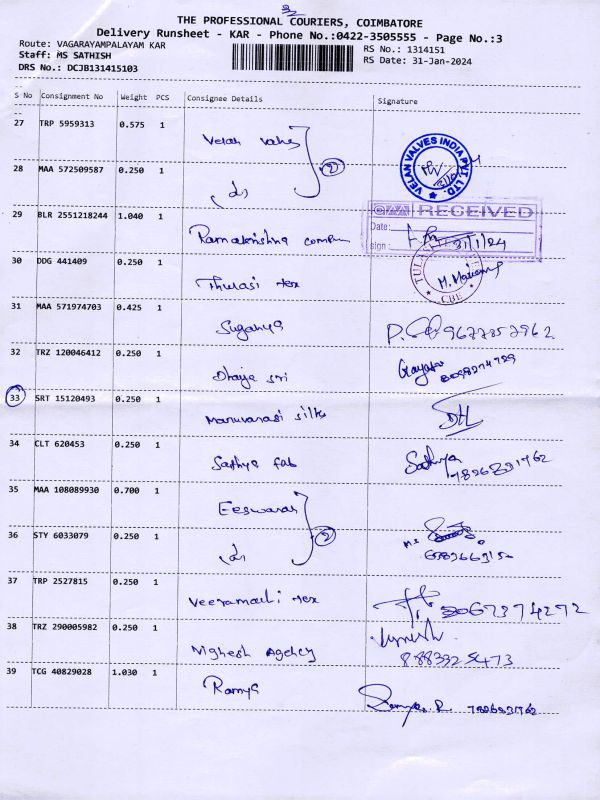 THE PROFESSIONAL COURIERS, COIMBATORE
Delivery Runsheet - KAR - Phone No.:0422-3505555 - Page No.:3
Route: VAGARAYAMPALAYAM KAR
RS No.: 1314151
Staff: MS SATHISH
RS Date: 31-Jan-2024
DRS No.: DCJB131415103
S No Consignment No Weight PCS Consignee Details Signature
27 TRP 5959313 0.575 1
Velan Valves
VELAN VALVES INDIA PVT. LTD.
28 MAA 572509587 0.250 1
2
do
29 BLR 2551218244 1.040 1
Ramakrishna
RECEIVED
Date:
sign: 31/1/24
30 DDG 441409 0.250 1
Thulasi tex
CBE
31 MAA 571974703 0.425 1
Suganya
9677857962
32 TRZ 120046412 0.250 1
sri
33 SRT 15120493 0.250 1
silks
34 CLT 620453 0.250 1
Sathya fab
Sathya
35 MAA 108089930 0.700 1
Eeswaran
36 STY 6033079 0.250 1
2
do
37 TRP 2527815 0.250 1
tex
38 TRZ 290005982 0.250 1
Vighesh Agency
8883325473
39 TCG 40829028 1.030 1
Ramya